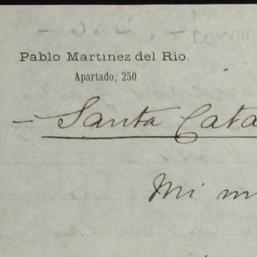 - S. C. -
Pablo Martinez del Rio.
Apartado, 250.
- Santa Cata
Mi m